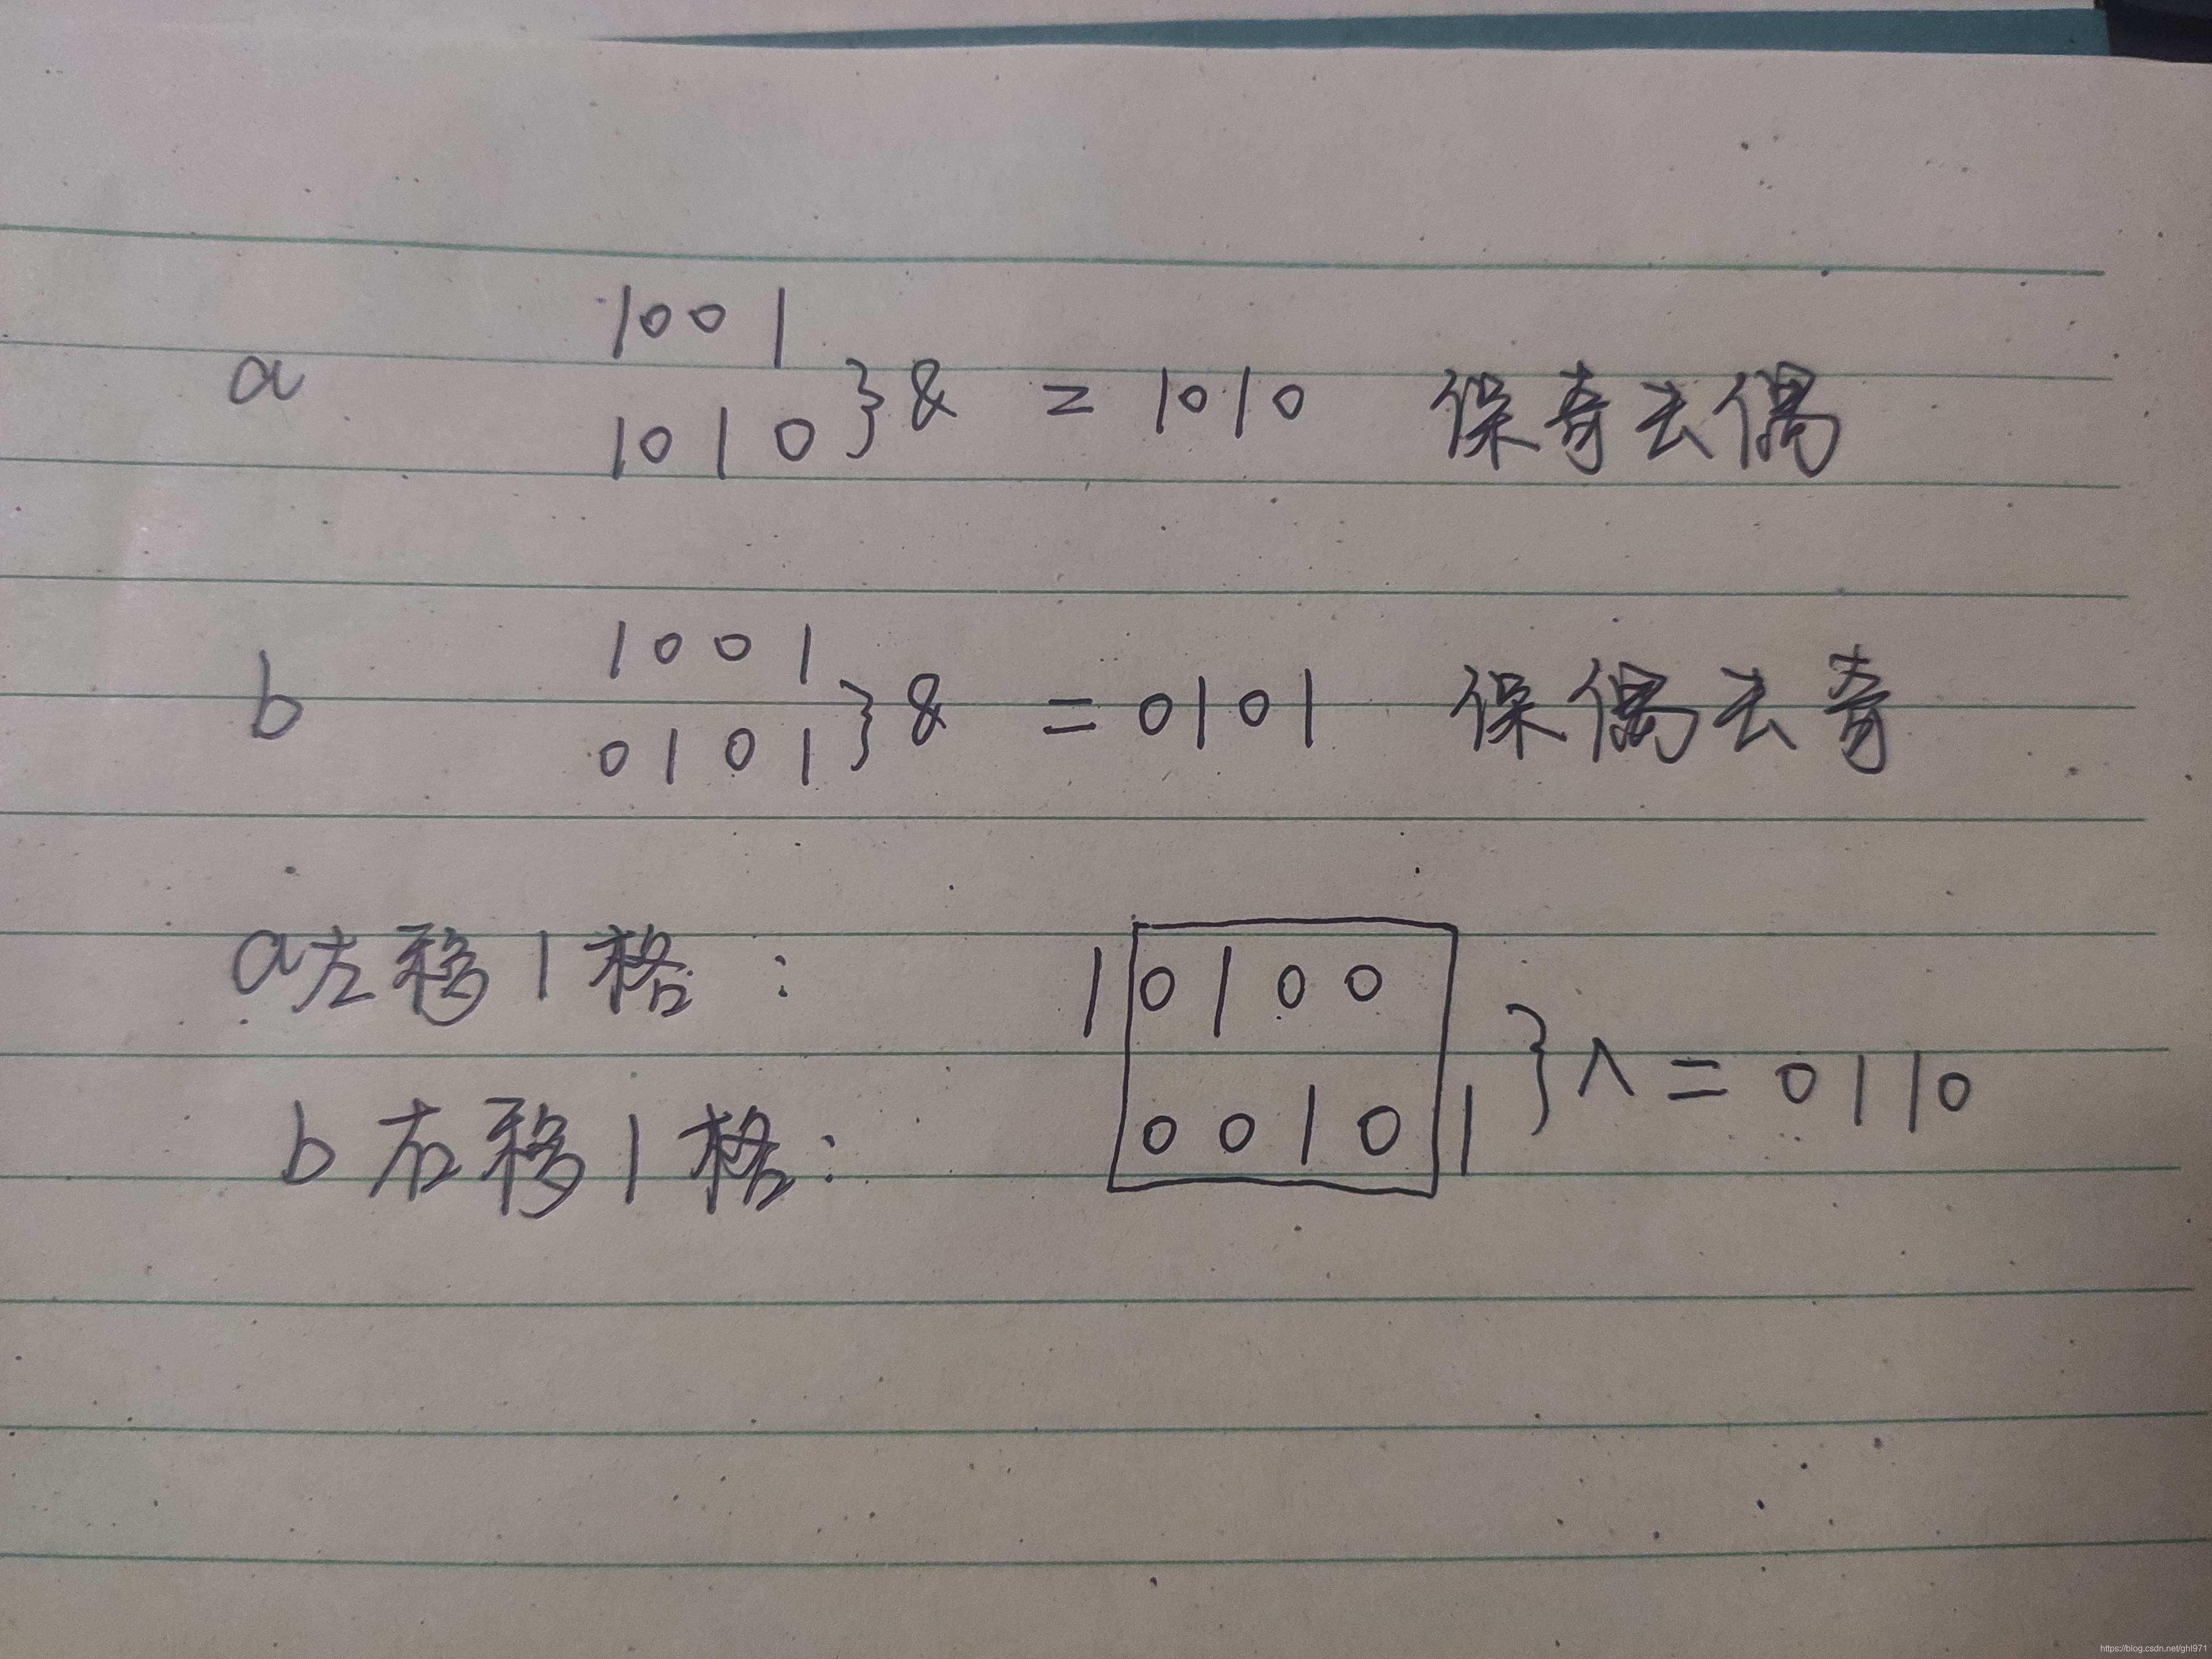 1001
a 1010 } & = 1010 保奇去偶
1001
b 0101 } & = 0101 保偶去奇
a左移1格: 10100
b右移1格: 00101 } ^ = 0110
https://blog.csdn.net/ghl971